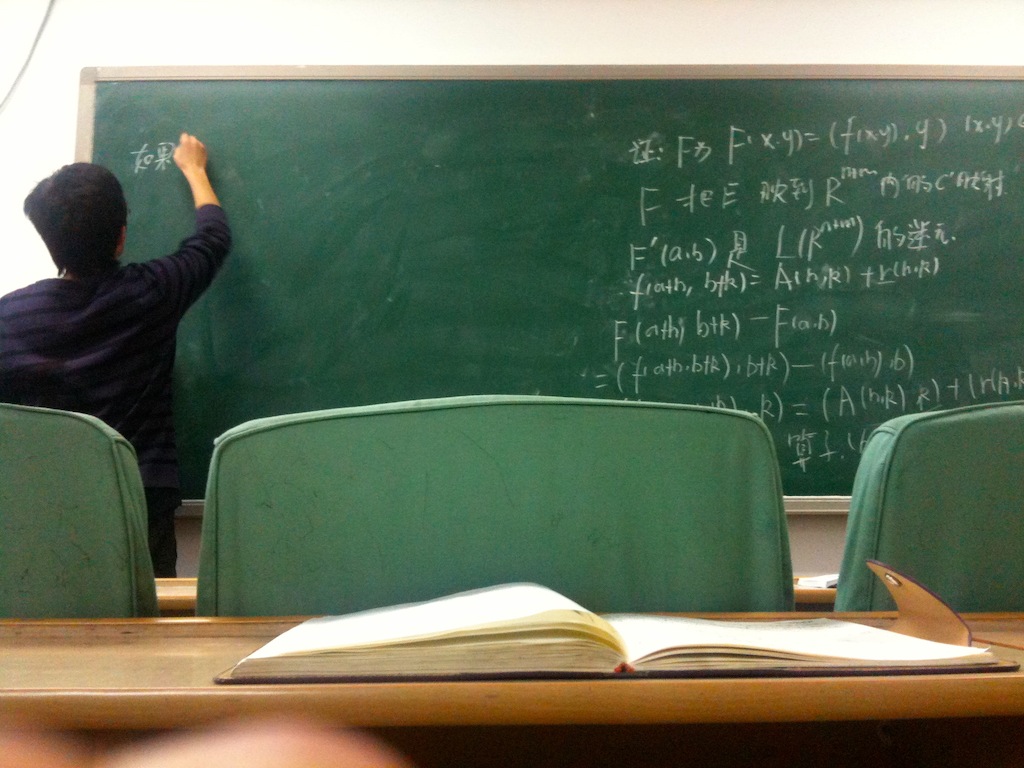 如果
证: F为 F(x.y)=(f(x,y),y) (x.y)∈
F 把E 映到 R^{n+m} 内的C'映射
F'(a,b)是 L(R^{n+m})的逆元.
f(a+h, b+k)= A(h,k)+r(h,k)
F(a+h, b+k)-F(a,b)
=(f(a+h,b+k),b+k)-(f(a,b),b)
,k)=(A(h,k) k)+(r(h,k
算子.